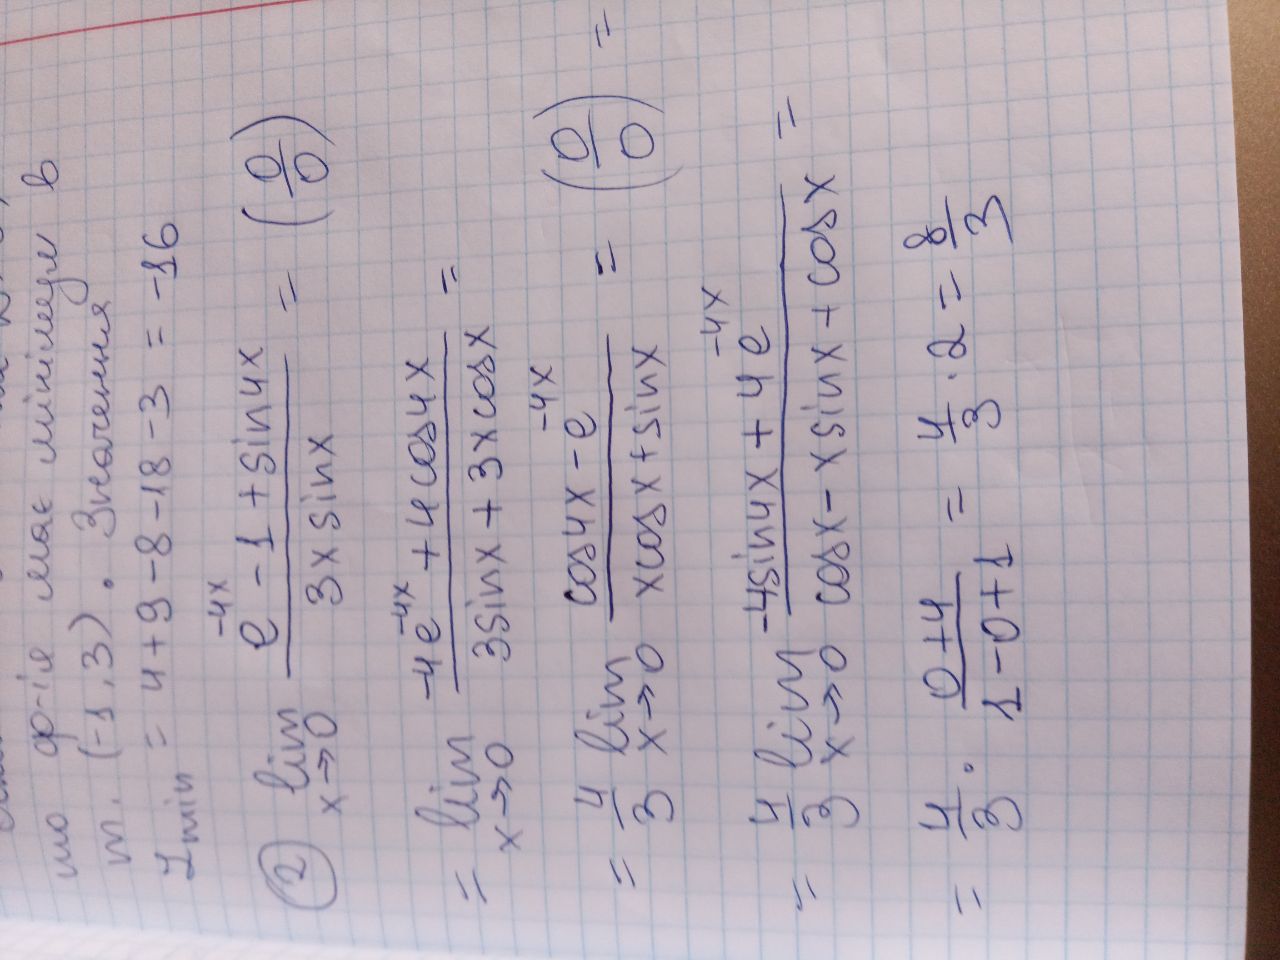 що ф-ія має мінімум в
т. (-1,3). Значення
Zmin = 4+9-8-18-3 = -16
② lim x→0 (e^{-4x} - 1 + sin4x)/(3x sinx) = (0/0)
= lim x→0 (-4e^{-4x} + 4cos4x)/(3sinx + 3xcosx) =
= 4/3 lim x→0 (cos4x - e^{-4x})/(xcosx + sinx) = (0/0) =
= 4/3 lim x→0 (-4sin4x + 4e^{-4x})/(cosx - xsinx + cosx) =
= 4/3 · (0+4)/(1-0+1) = 4/3 · 2 = 8/3